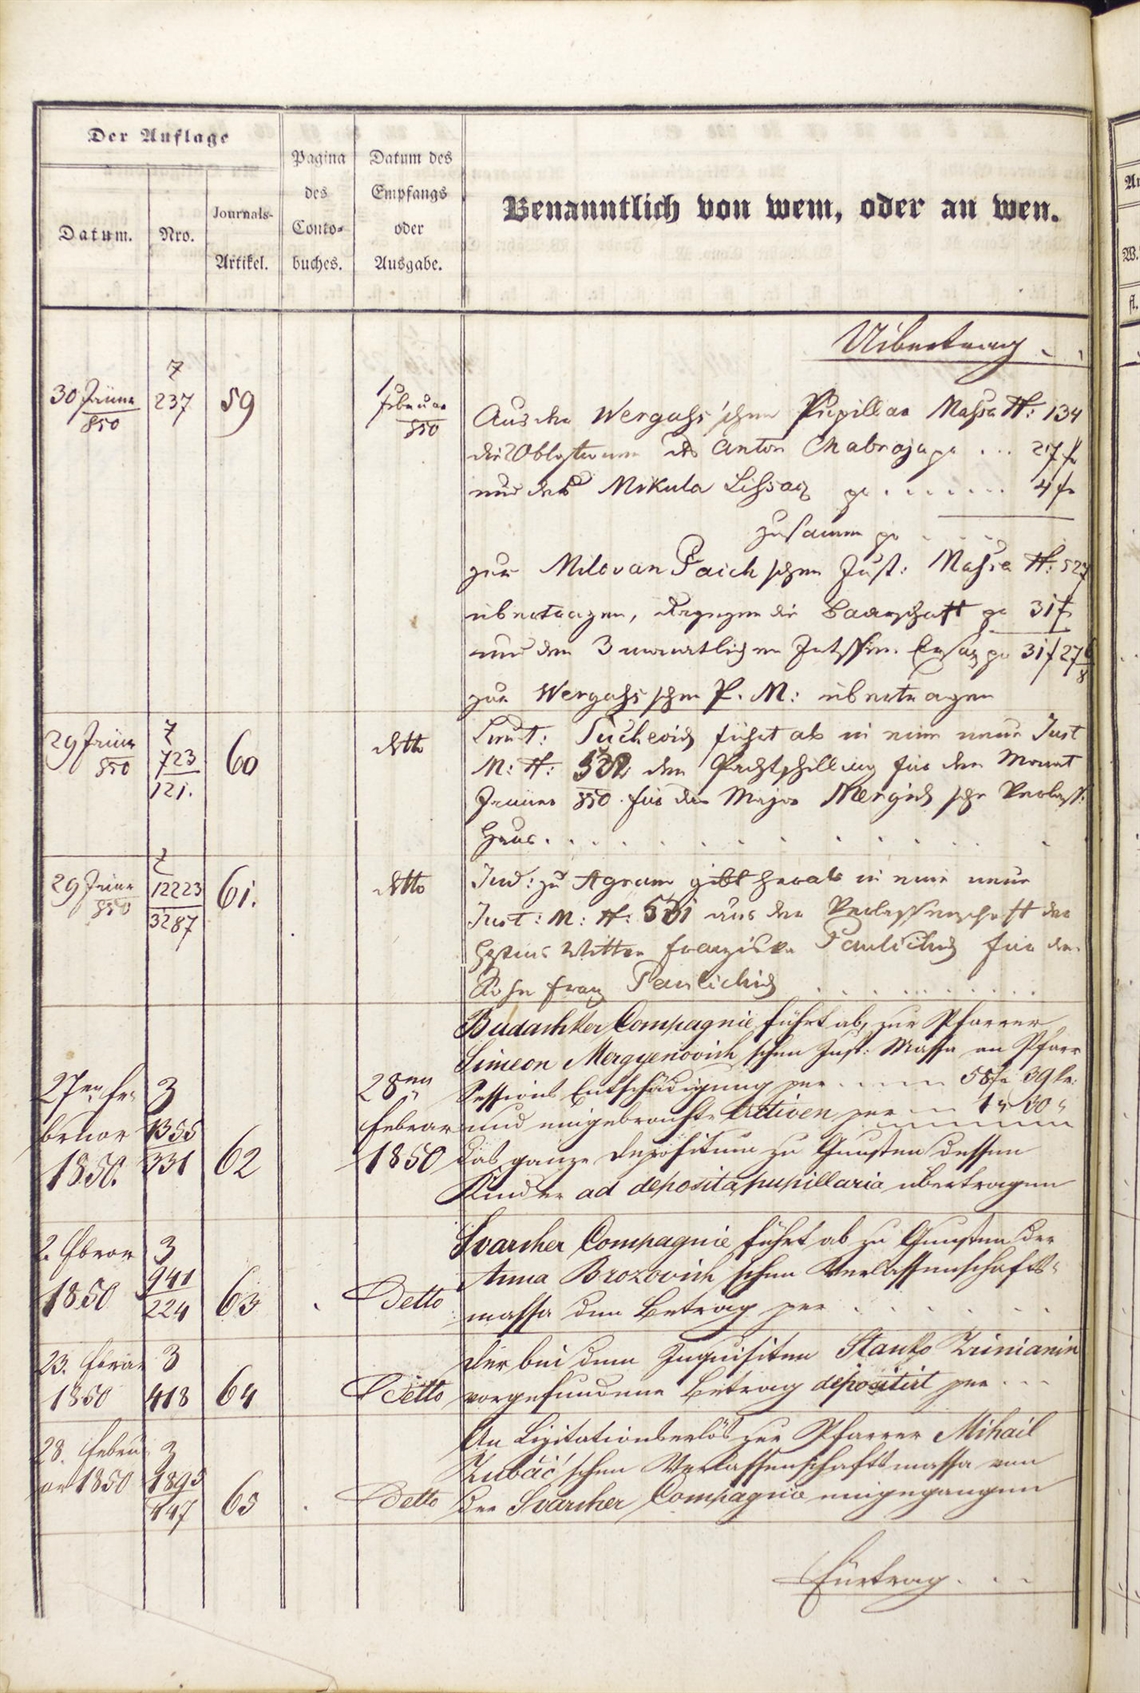 Der Auflage
Datum.
Nro.
Journals-
Artikel.
Pagina
des
Conto-
buches.
Datum des
Empfangs
oder
Ausgabe.
Benanntlich von wem, oder an wen.
Uibertrag . .
30 Jäner
850
Z
237
59
1
Februar
850
Aus der Wergahs'schen Pupillar Massa N: 134
die Obligationen des Anton Chabraja pr ... 27 f
und des Mikula Lissacz pr ....... 4 f
zusammen pr
zur Milovan Paich'schen Just: Massa N: 527
übertragen, dagegen die Baarschaft pr 31 f
und den 3 monatlichen Intssen. Ersaz pr 31 f 27 6/8
zur Wergahs'schen P. M: übertragen
29 Jäner
850
Z
723
121.
60
detto
Lieut: Tuchevich führt ab in eine neue Just
M: N: 532 den Pachtschilling für den Monat
Jänner 850 für das Major Mergich'sche Verlass:
Haus. . . . . . . . . . . . .
29 Jäner
850
Z
12223
3287
61.
detto
Jud: zu Agram gibt herab in eine neue
Just: M: N: 531 aus der Verlassenschaft der
Witwe Franziska Paulichich für den
Sohn Franz Paulichich . . . . . . . .
27en Fe-
bruar
1850.
3
1355
331
62
28en
Februar
1850
Budachker Compagnie führt ab, zur Pfarrer
Simeon Mergyenovich'schen Just: Massa an Pfarr
Sessions Entschädigung per ..... 58 f 39 kr.
und eingebrachte Activen per ... 1 " 30 "
das ganze Depositum zu Gunsten dessen
Kinder ad deposita pupillaria übertragen
2. Febrar
1850
3
941
224
63
Detto
Svarcher Compagnie führt ab zu Gunsten der
Anna Brozovich'schen Verlassenschafts-
massa den Betrag per . . . . . . .
23. Febrar
1850
3
418
64
Detto
Der bei dem Inquisiten Stanko Zrinianin
vorgefundene Betrag depositirt per . . .
28. Febru-
ar 1850
3
1895
447
65
Detto
An Lizitationserlös zur Pfarrer Mihail
Zubčić'schen Verlassenschaftsmassa von
der Svarcher Compagnie eingegangen
Fürtrag. . .